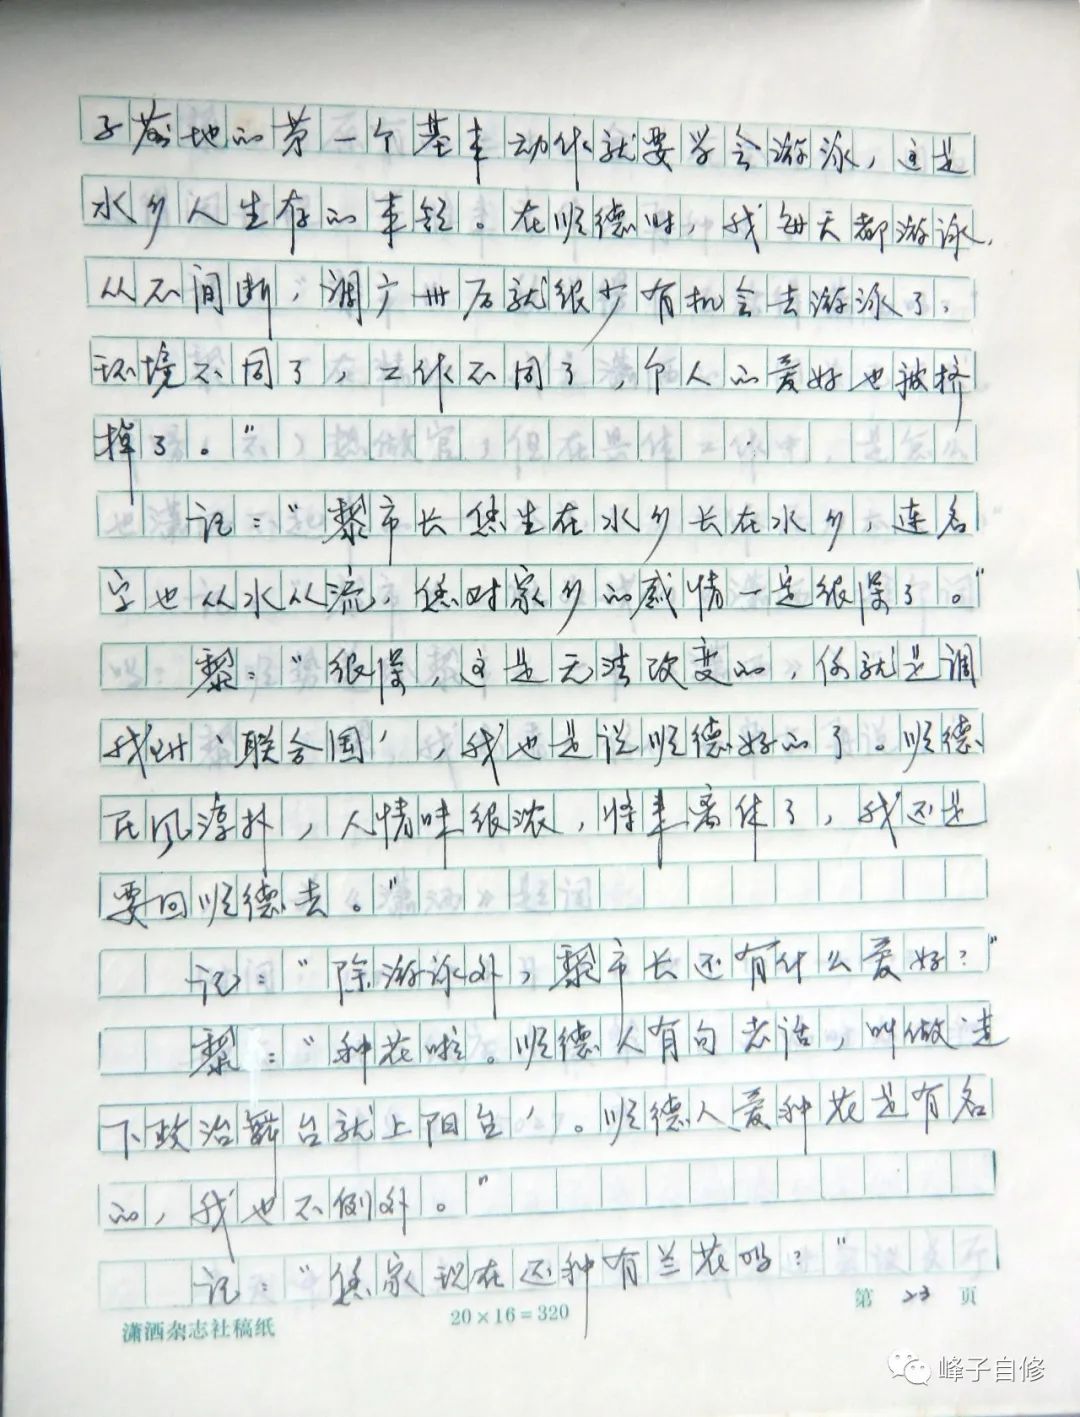 子落地的第一个基本动作就要学会游泳，这是
水乡人生存的本领。在顺德时，我每天都游泳，
从不间断，调广州后就很少有机会去游泳了，
环境不同了，工作不同了，个人的爱好也被挤
掉了。"
记："黎市长您生在水乡长在水乡，连名
字也从水从流，您对家乡的感情一定很深了。"
黎："很深，这是无法改变的，你就是调
我到'联合国'，我也是说顺德好的了。顺德
民风淳朴，人情味很浓，将来离休了，我还是
要回顺德去。"
记："除游泳外，黎市长还有什么爱好？"
黎："种花啦。顺德人有句老话，叫做'走
下政治舞台就上阳台'。顺德人爱种花是有名
的，我也不例外。"
记："您家现在还种有兰花吗？"
潇洒杂志社稿纸
20×16=320
第 23 页
峰子自修